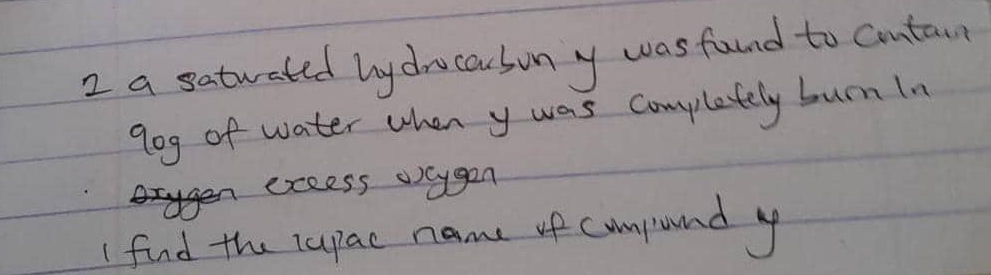 2 a saturated hydrocarbon y was found to contain
90g of water when y was completely burn In
oxygen excess oxygen
1 find the iupac name of compound y